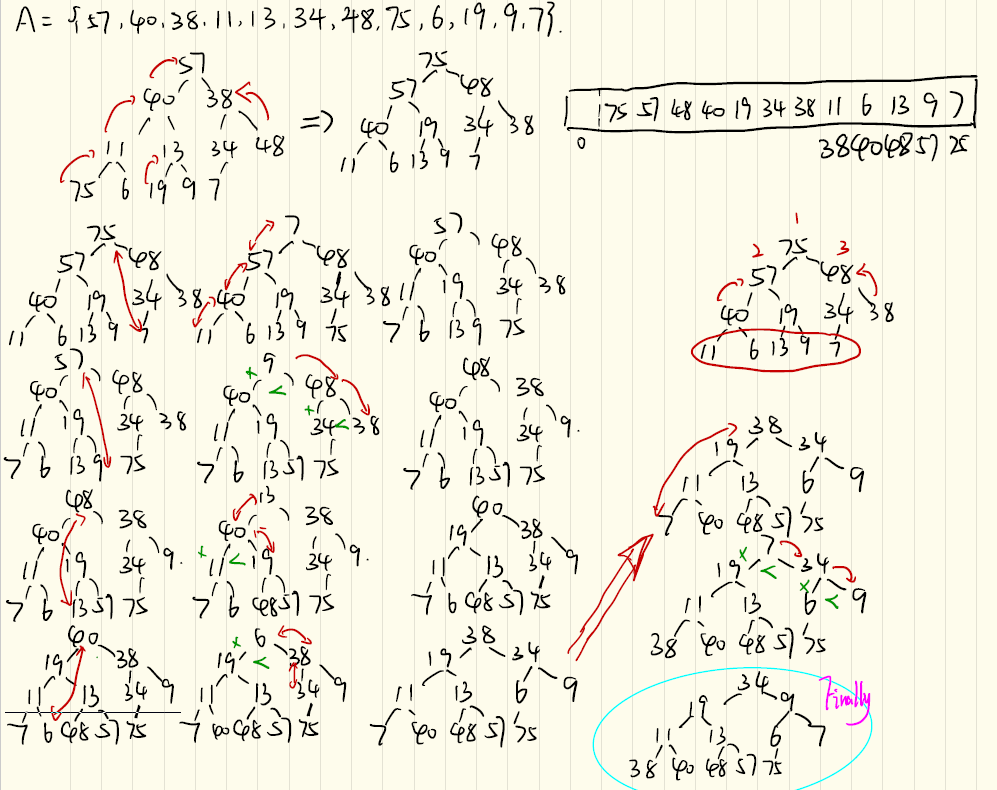 A = {57, 40, 38, 11, 13, 34, 48, 75, 6, 19, 9, 7}.
57
40 38
11 13 34 48
75 6 19 9 7
=>
75
57 48
40 19 34 38
11 6 13 9 7
75 57 48 40 19 34 38 11 6 13 9 7
0
38 40 48 57 75
75
57 48
40 19 34 38
11 6 13 9 7
7
57 48
40 19 34 38
11 6 13 9 75
57
40 48
11 19 34 38
7 6 13 9 75
1
2 75 3
57 48
40 19 34 38
11 6 13 9 7
57
40 48
11 19 34 38
7 6 13 9 75
9
x <
40 48
x <
11 19 34 38
7 6 13 57 75
48
40 38
11 19 34 9.
7 6 13 57 75
48
40 38
11 19 34 9.
7 6 13 57 75
13
40 38
x <
11 19 34 9.
7 6 48 57 75
40
19 38
11 13 34 9
7 6 48 57 75
40
19 38
11 13 34 9
7 6 48 57 75
6
x <
19 38
11 13 34 9
7 40 48 57 75
38
19 34
11 13 6 9
7 40 48 57 75
38
19 34
11 13 6 9
7 40 48 57 75
7
x <
19 34
x <
11 13 6 9
38 40 48 57 75
34
19 9
Finally
11 13 6 7
38 40 48 57 75